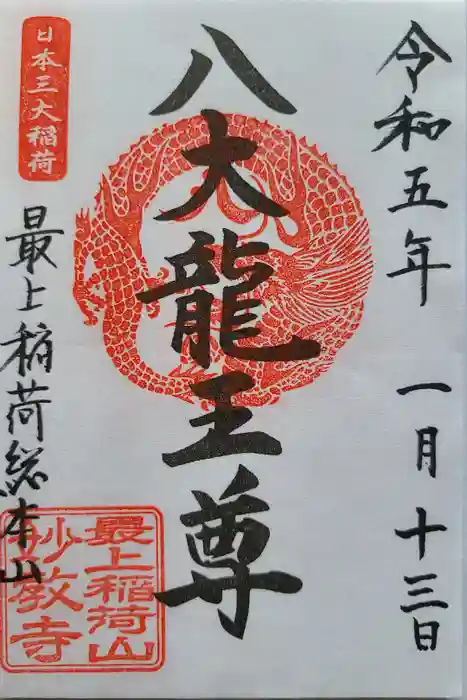 令和五年 一月十三日
八大龍王尊
日本三大稲荷
最上稲荷総本山
最上稲荷山
妙教寺